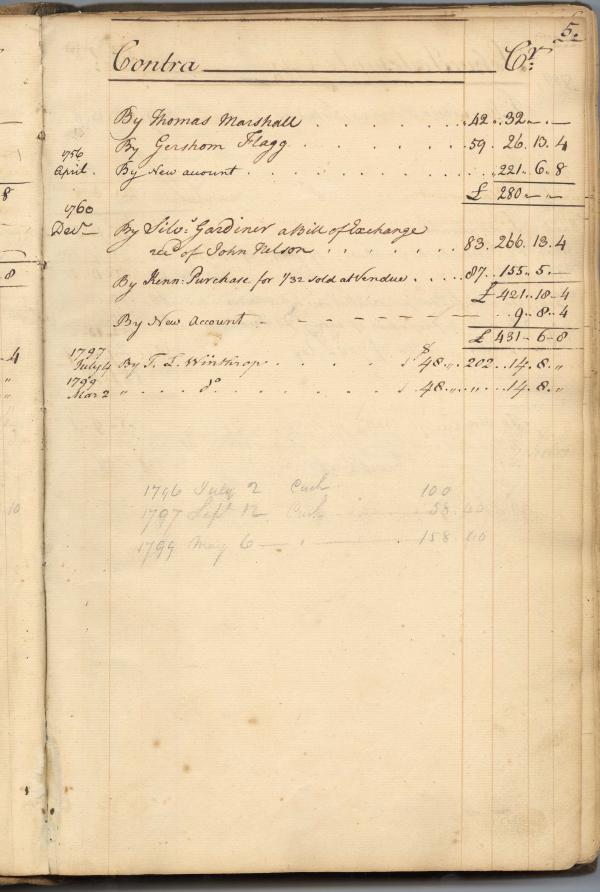 5.
Contra Cr:
By Thomas Marshall . . . . . 42 . 32 . — . —
By Gershom Flagg . . . . . . 59 . 26 . 13 . 4
1756
April . By New acount . . . . . . . . 221 . 6 . 8
£ 280 — —
1760
Decr By Silvr Gardiner a Bill of Exchange
recd of John Nelson . . . . . . 83 . 266 . 13 . 4
By Kenn: Purchase for 1/32 sold at Vendue . . . . 87 . 155 . 5 . —
£ 421 . 18 . 4
By New Account . — — — — — . . 9 . 8 . 4
£ 431 - 6 - 8
1797 $
July 4 By T. L. Winthrop . . . . . 48 . ,, . 202 . 14 . 8 . ,,
1799
Mar 2 ,, . . . . do . . . . . . . . 48 . ,, . ,, . 14 . 8 . ,,
1796 July 2 Cash 100
1797 Sept 12 Cash 58 . 40
1799 May 6 — 158 . 40
8
8
4
10